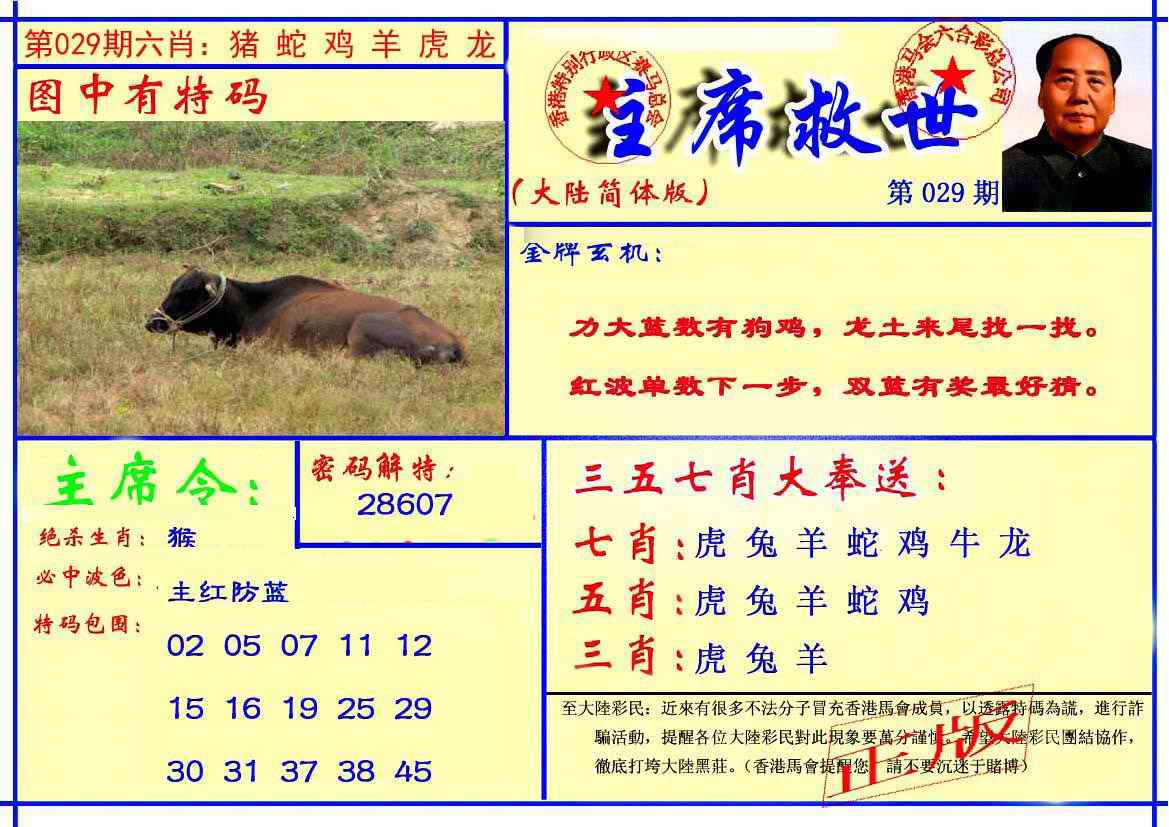 第029期六肖：猪 蛇 鸡 羊 虎 龙
图中有特码
香港特别行政区赛马总会
香港马会六合彩总公司
主席救世
（大陆简体版）
第 029 期
金牌玄机：
力大蓝数有狗鸡，龙土来尾找一找。
红波单数下一步，双蓝有奖最好猜。
主席令：
绝杀生肖：猴
必中波色：主红防蓝
特码包围：
02 05 07 11 12
15 16 19 25 29
30 31 37 38 45
密码解特：
28607
三五七肖大奉送：
七肖：虎 兔 羊 蛇 鸡 牛 龙
五肖：虎 兔 羊 蛇 鸡
三肖：虎 兔 羊
至大陸彩民：近來有很多不法分子冒充香港馬會成員，以透露特碼為謊，進行詐
騙活動，提醒各位大陸彩民對此現象要萬分謹慎。希望大陸彩民團結協作，
徹底打垮大陸黑莊。（香港馬會提醒您 請不要沉迷于賭博）
正版